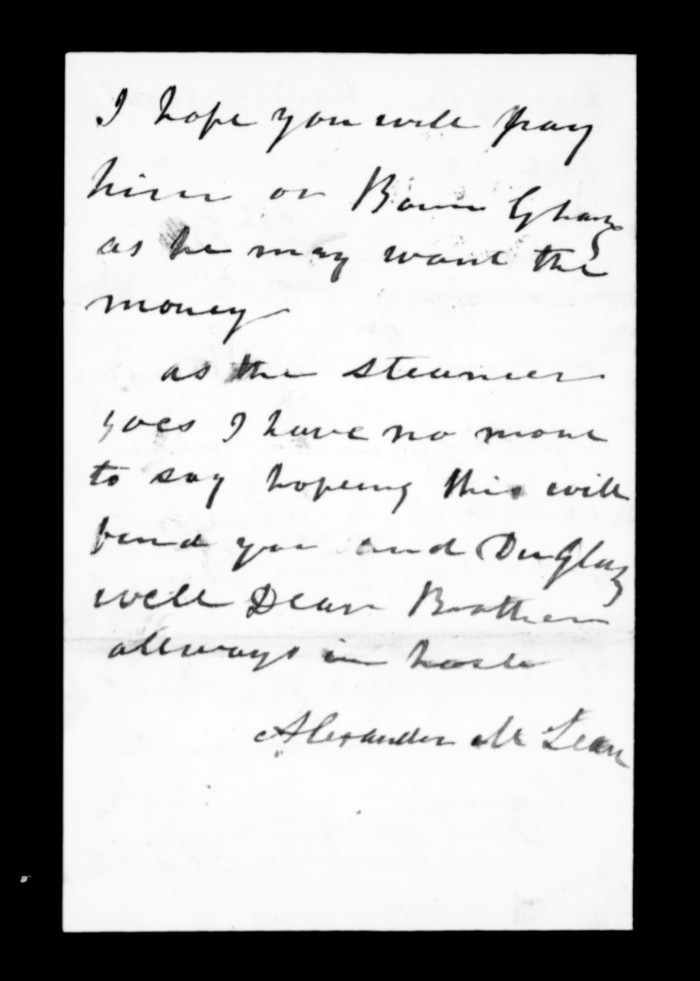 I hope you will pay
him or
as he may want the
money
as the steamer
goes I have no more
to say hopeing this will
find you and Duglaz
well Dear Brother
allways in haste
Alexander Mc Lean